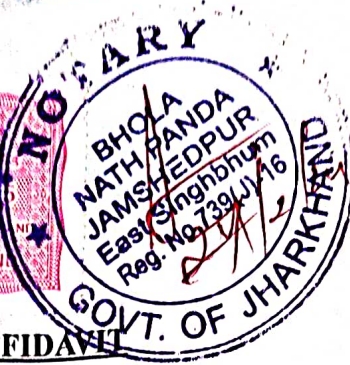 NOTARY
BHOLA
NATH PANDA
JAMSHEDPUR
East Singhbhum
Reg. No. 739(J) 16
GOVT. OF JHARKHAND
FIDAVIT